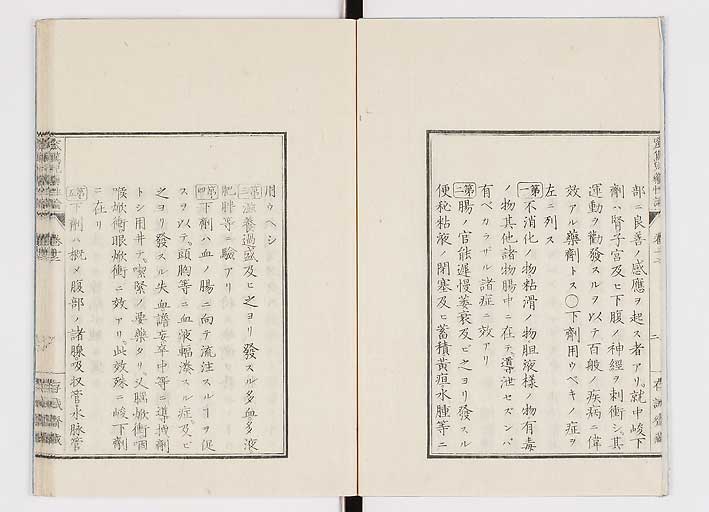 部ニ良善ノ感應ヲ起ス者アリ就中峻下
劑ハ腎子宮及ヒ下腹ノ神經ヲ刺衝シ其
運動ヲ勸發スルヲ以テ百般ノ疾病ニ偉
效アル藥劑トス〇下劑用ウベキノ症ヲ
左ニ列ス
第一不消化ノ物粘滑ノ物胆液様ノ物有毒
ノ物其他諸物腸中ニ在テ導泄セズンバ
有ベカラザル諸症ニ效アリ
第二腸ノ官能遲慢萎衰及ビ之ヨリ發スル
便秘粘液ノ閉塞及ヒ蓄積黄疸水腫等ニ
二
用ウヘシ
第三滋養過盛及ヒ之ヨリ發スル多血多液
肥胖等ニ驗アリ
第四下劑ハ血ノ腸ニ向テ流注スルヿヲ促
スヲ以テ頭胸等ニ血液輻湊スル症及ビ
之ヨリ發スル失血譫妄卒中等ニ導摶劑
トシ用井テ喫緊ノ要藥タリ又腦焮衝咽
喉焮衝眼焮衝ニ效アリ此效殊ニ峻下劑
ニ在リ
第五下劑ハ概メ腹部ノ諸腺吸収管水脉管